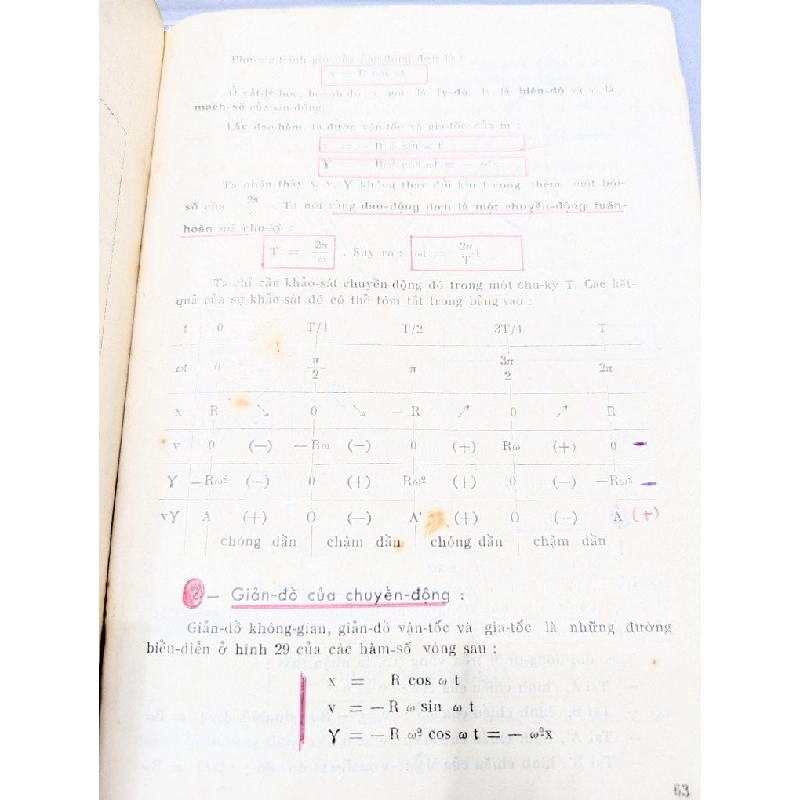 Phương trình giờ của dao-động đơn là :
x = R cos ωt
Ở vật-lý học, hoành-độ x gọi là ly-độ, R là biên-độ và ω là
mạch-số của sin động.
Lấy đạo-hàm ta được vận-tốc và gia-tốc của m :
v = – R ω sin ω t
γ = – Rω² cos ωt = – ω²x
Ta nhận thấy x, v, γ không thay đổi khi t cộng thêm một bội-
số của 2π. Ta nói rằng dao-động đơn là một chuyển-động tuần-
hoàn mà chu-kỳ :
T = 2π/ω . Suy ra : ωt = 2π/T t
Ta chỉ cần khảo-sát chuyển-động đó trong một chu-kỳ T. Các kết-
quả của sự khảo sát đó có thể tóm tắt trong bảng sau :
t 0 T/4 T/2 3T/4 T
ωt 0 π/2 π 3π/2 2π
x R ↘ 0 ↘ – R ↗ 0 ↗ R
v 0 (—) – Rω (—) 0 (+) Rω (+) 0 –
γ – Rω² (—) 0 (+) Rω² (+) 0 (—) – Rω² –
vγ A (+) O (—) A' (+) O (—) A (+)
chóng dần chậm dần chóng dần chậm dần
2 — Giản-đồ của chuyển-động :
Giản-đồ không-gian, giản-đồ vận-tốc và gia-tốc là những đường
biểu-diễn ở hình 29 của các hàm-số vòng sau :
x = R cos ω t
v = – R ω sin ω t
γ = – R ω² cos ω t = – ω²x
63